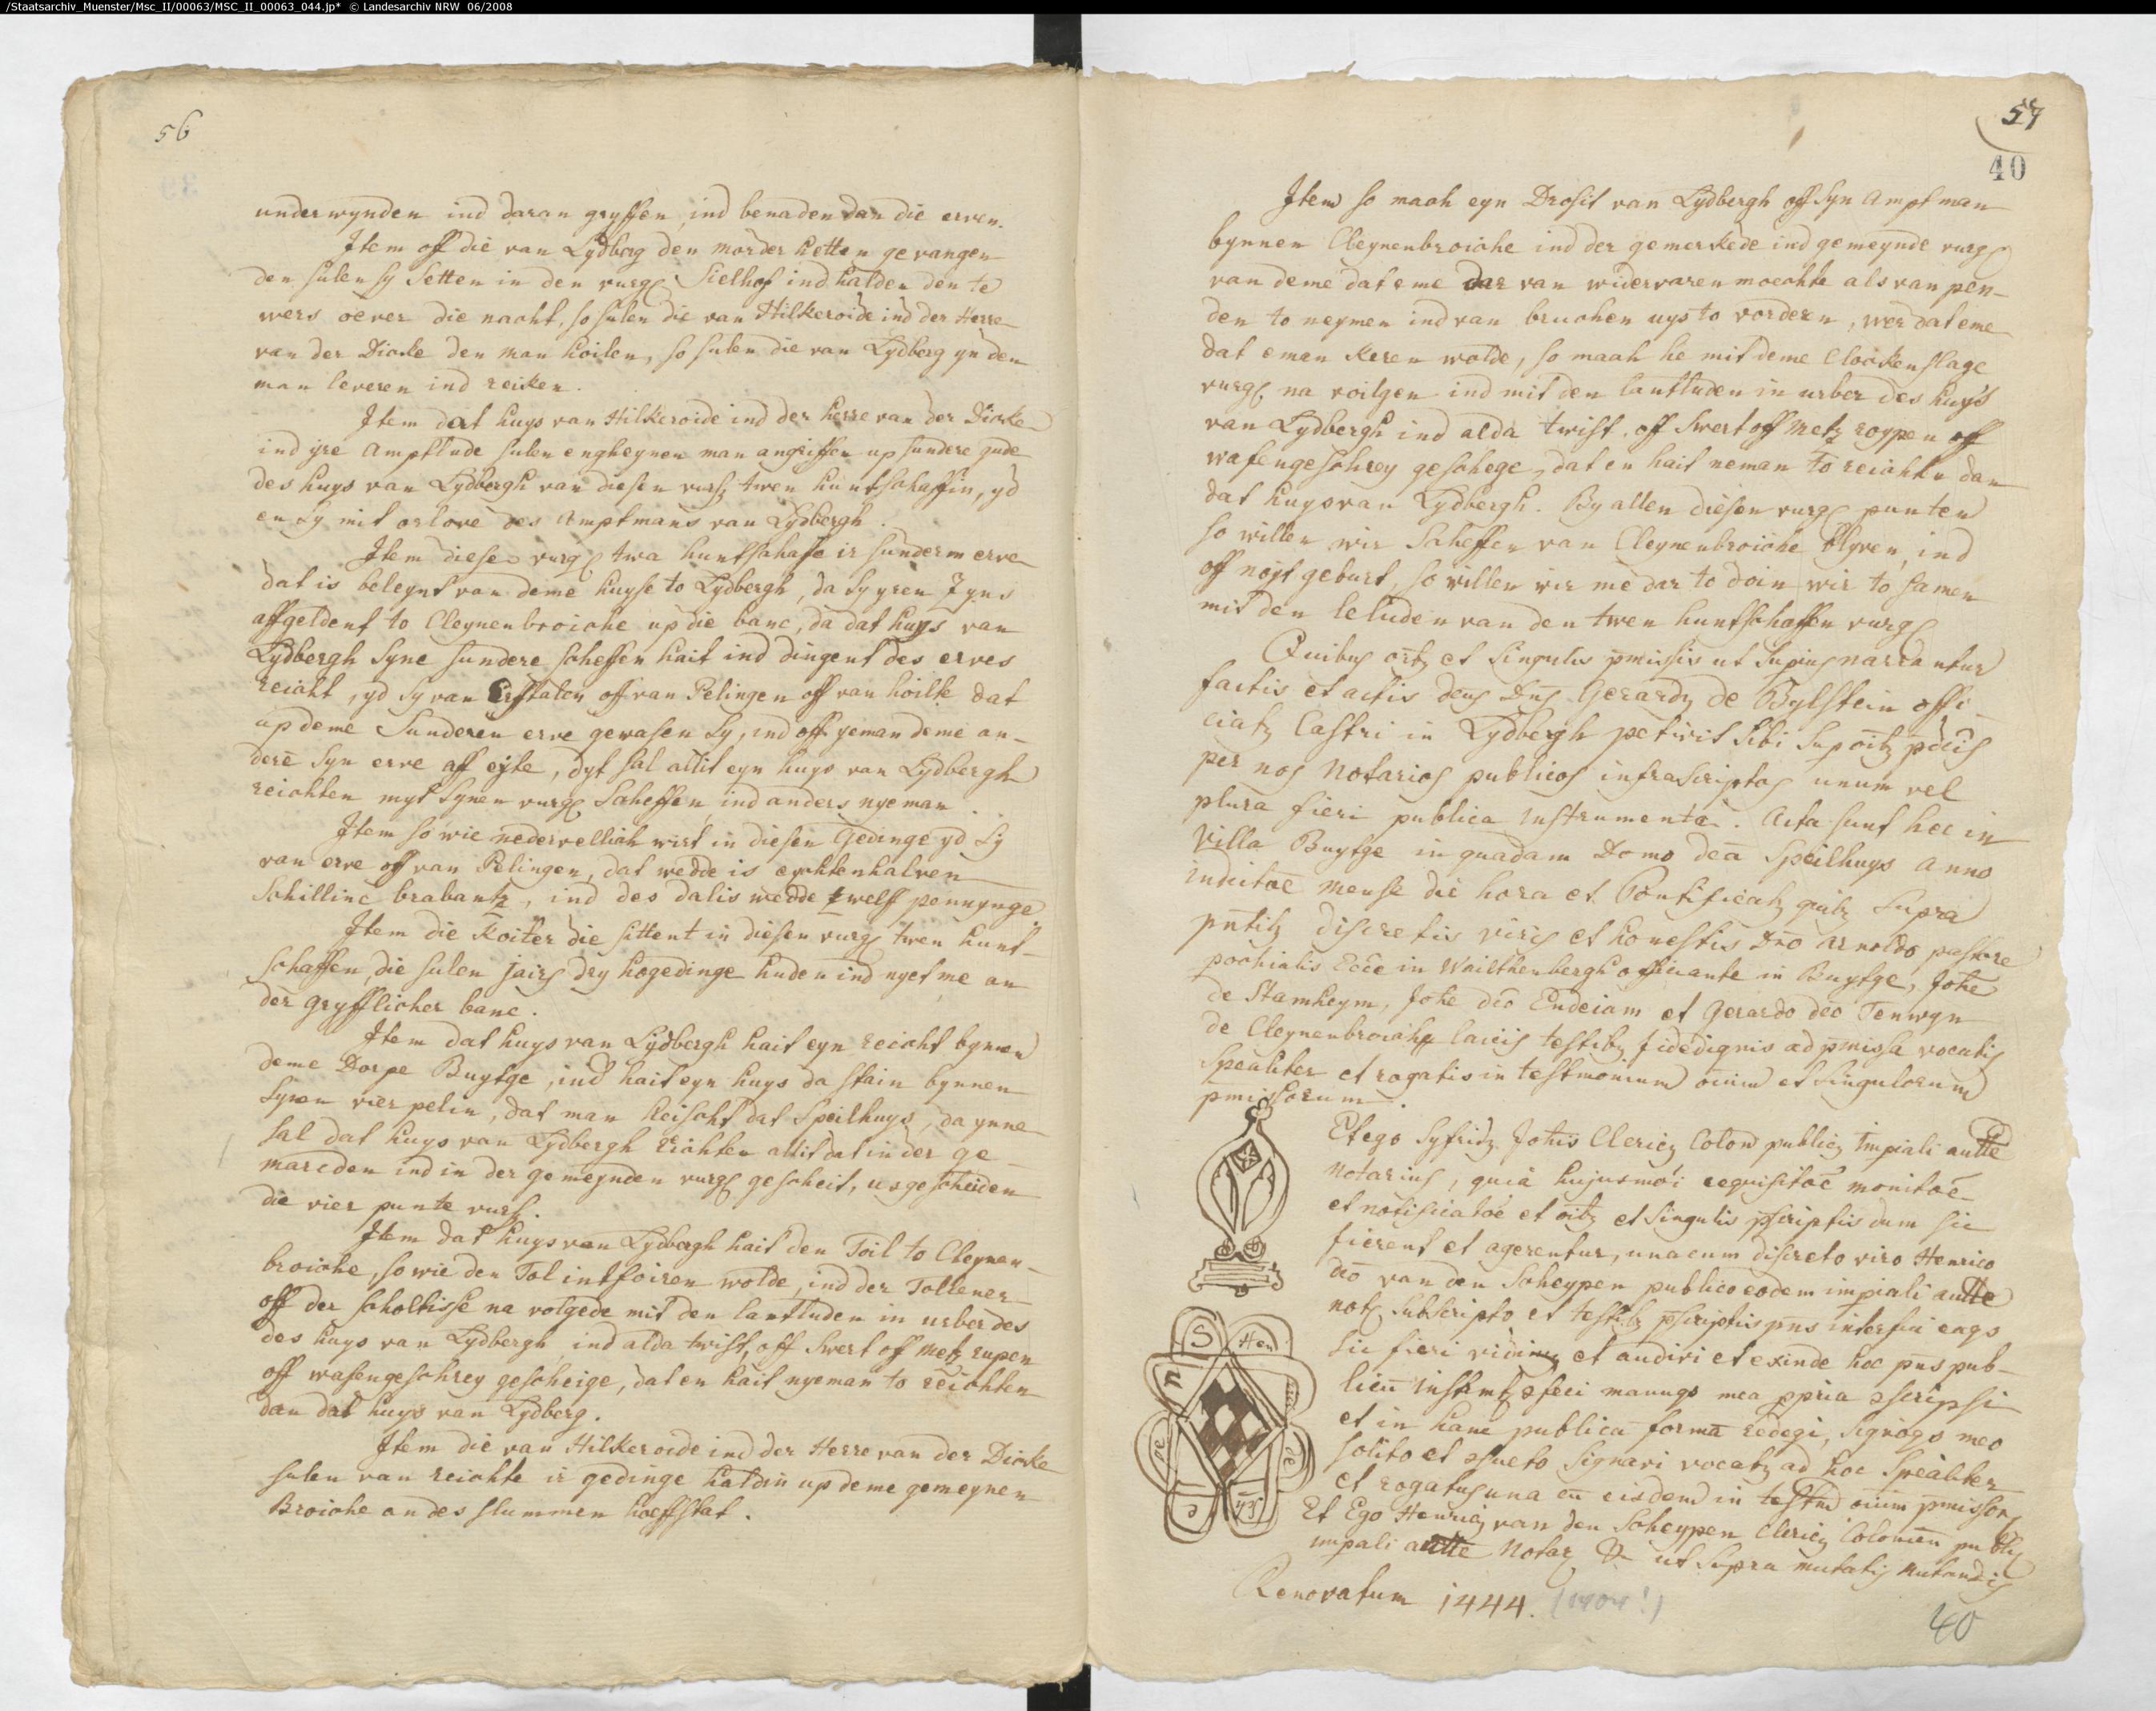 /Staatsarchiv_Muenster/Msc_II/00063/MSC_II_00063_044.jp* © Landesarchiv NRW 06/2008
56
underwynden ind daran gryffen, ind benaden dan die erven.
Item off die van Lydberg den morder hetten gevangen
den sulen sy setten in den vurg Sielhof ind halden den te
wers oever die nacht, so sulen die van Hilkeroide ind der Herre
van der Dicke den man hoilen, so sulen die van Lydberg yn den
man leveren ind reiken.
Item dat huys van Hilkeroide ind der herre van der Dicke
ind yre Amptlude sulen engheynen man angriffen up sundere gude
des huys van Lydbergh van diesen vurß twen huntschaffin, yd
en sy mit orlove des Amptmans van Lydbergh.
Item diese vurg twa huntschaffe ir sunderm erve
dat is beleynt van deme huyse to Lydbergh, da sy yren Zyns
affgeldent to Cleynenbroiche up die banc, da dat huys van
Lydbergh syne sundere scheffen hait ind dingent des erves
reicht, yd sy van Erfftalen off van Pelingen off van hoilte dat
up deme Sunderen erve gewasen sy, ind off yeman deme an-
dere syn erve aff eyte, dyt sal altit eyn huys van Lydbergh
reichten myt synen vurg Scheffen, ind anders nyeman
Item so wie nedervellich wirt in diesen Gedinge yd sy
van erve off van Pelingen, dat wedde is eychtenhalven
Schillinc brabantz, ind des dalis wedde twelff pennynge
Item die Koiter die sittent in diesen vurg twen hunt-
schaffen, die sulen jairs dry hogedinge huden ind nyet me an
der gryfflicher banc.
Item dat huys van Lydbergh hait eyn reicht bynnen
deme Dorpe Buytge, ind hait eyn huys da stain bynnen
synen vier pelin, dat man heischt dat Speilhuys, da ynne
sal dat huys van Lydbergh richten altit dat in der ge-
marcden ind in der gemeynden vurg gescheit, usgescheiden
die vier punte vurß.
Item dat huys van Lydbergh hait den Toil to Cleynen-
broiche, so wie den Tol intfoiren wolde, ind der Tollener
off der scholtisse na volgede mit den lantluden in urber des
des huys van Lydbergh, ind alda twist, off swert off metz rupen
off wafengeschrey gescheige, dat en hait nyeman to reichten
dan dat huys van Lydberg.
Item die van Hilkeroide ind der Herre van der Dicke
sulen van reichte ir gedinge haldin up deme gemeynen
Broiche an des slummen hoeffstat.
57
40
Item so mach eyn Drosit van Lydbergh off syn Amptman
bynnen Cleynenbroiche ind der gemerkede ind gemeynde vurg
van deme dat eme dar van widervaren moechte als van pen-
den to neymen ind van bruchen uys to vorderen, wer dat eme
dat eman keren wolde, so maah he mit deme Clockenslage
vurg na voilgen ind mit den lantluden in urber des huys
van Lydbergh ind alda twist, off swert off metz roypen off
wafengeschrey geschege, dat en hait neman to reichtn dan
dat huys van Lydbergh. By allen diesen vurg punten
so willen wir Scheffen van Cleynenbroiche blyven, ind
off noyt geburt, so willen wir me dar to doin wir to samen
mit den leluden van den twen huntschaffen vurg
Quibus oibz et singulis pmissis ut supius narrantur
factis et actis deus Dns Gerardz de Bylstein offi
ciatz Castri in Lydbergh petivit sibi sup oibz pdcis
per nos Notarios publicos infrascriptos unum vel
plura fieri publica instrumenta. Acta sunt hec in
villa Buytge in quadam Domo dca Speilhuys anno
indictoe mense die hora et Pontificatz quibz supra
pntibz discretis viris et honestis Dno Arnoldo pastore
pochialis Ecce in Wailthenbergh officiante in Buytge, Johe
de Stamheym, Johe dco Endeiam et Gerardo dco Tenwyn
de Cleynenbroiche laicis testibz fidedignis ad pmissa vocatis
spealiter et rogatis in testmonium oium et singulorum
pmissorum.
Et ego Syfridz Johis Clericz Colon publicz Impiali autte
Notarius, quia hujusmoi requisitoe monitoe
et notificatoe et oibz et singulis pscriptis dum sic
fierent et agerentur, una cum discreto viro Henrico
dco van den Scheypen publico eodem impiali autte
notß subscripto et testibz pscriptis pns interfui eags
sic fieri vidi et audivi et exinde hoc pns pub-
licu instrmtz confeci manugs mea ppria conscripsi
et in hanc publica forma redegi, signogs meo
solito et consueto signavi vocatz ad hoc spealiter
et rogatus una cu eisdem in testm oium pmissorz
Et Ego Henricz van den Scheypen Clericz Colonien publcz
impali autte Notarz &c ut supra mutatis mutandis
S
Hen
Renovatum 1444. (1404!)
40